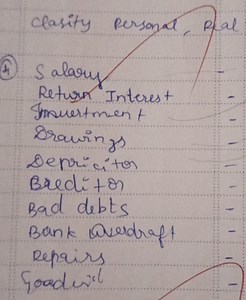 Clasity Personal, Real
4 Salary -
Return Interest -
Invuertment -
Drawings -
Depricitor -
Breditor -
Bad debts -
Bank Overdraft -
Repairs -
Goodwil -